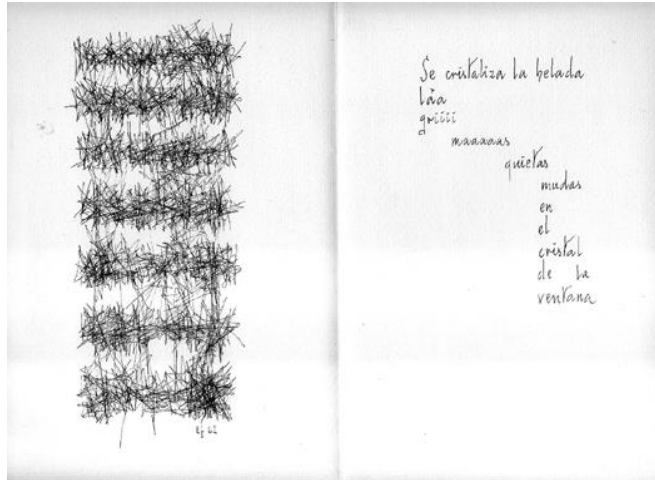 Se cristaliza la helada
láa
griiii
maaaaas
quietas
mudas
en
el
cristal
de la
ventana